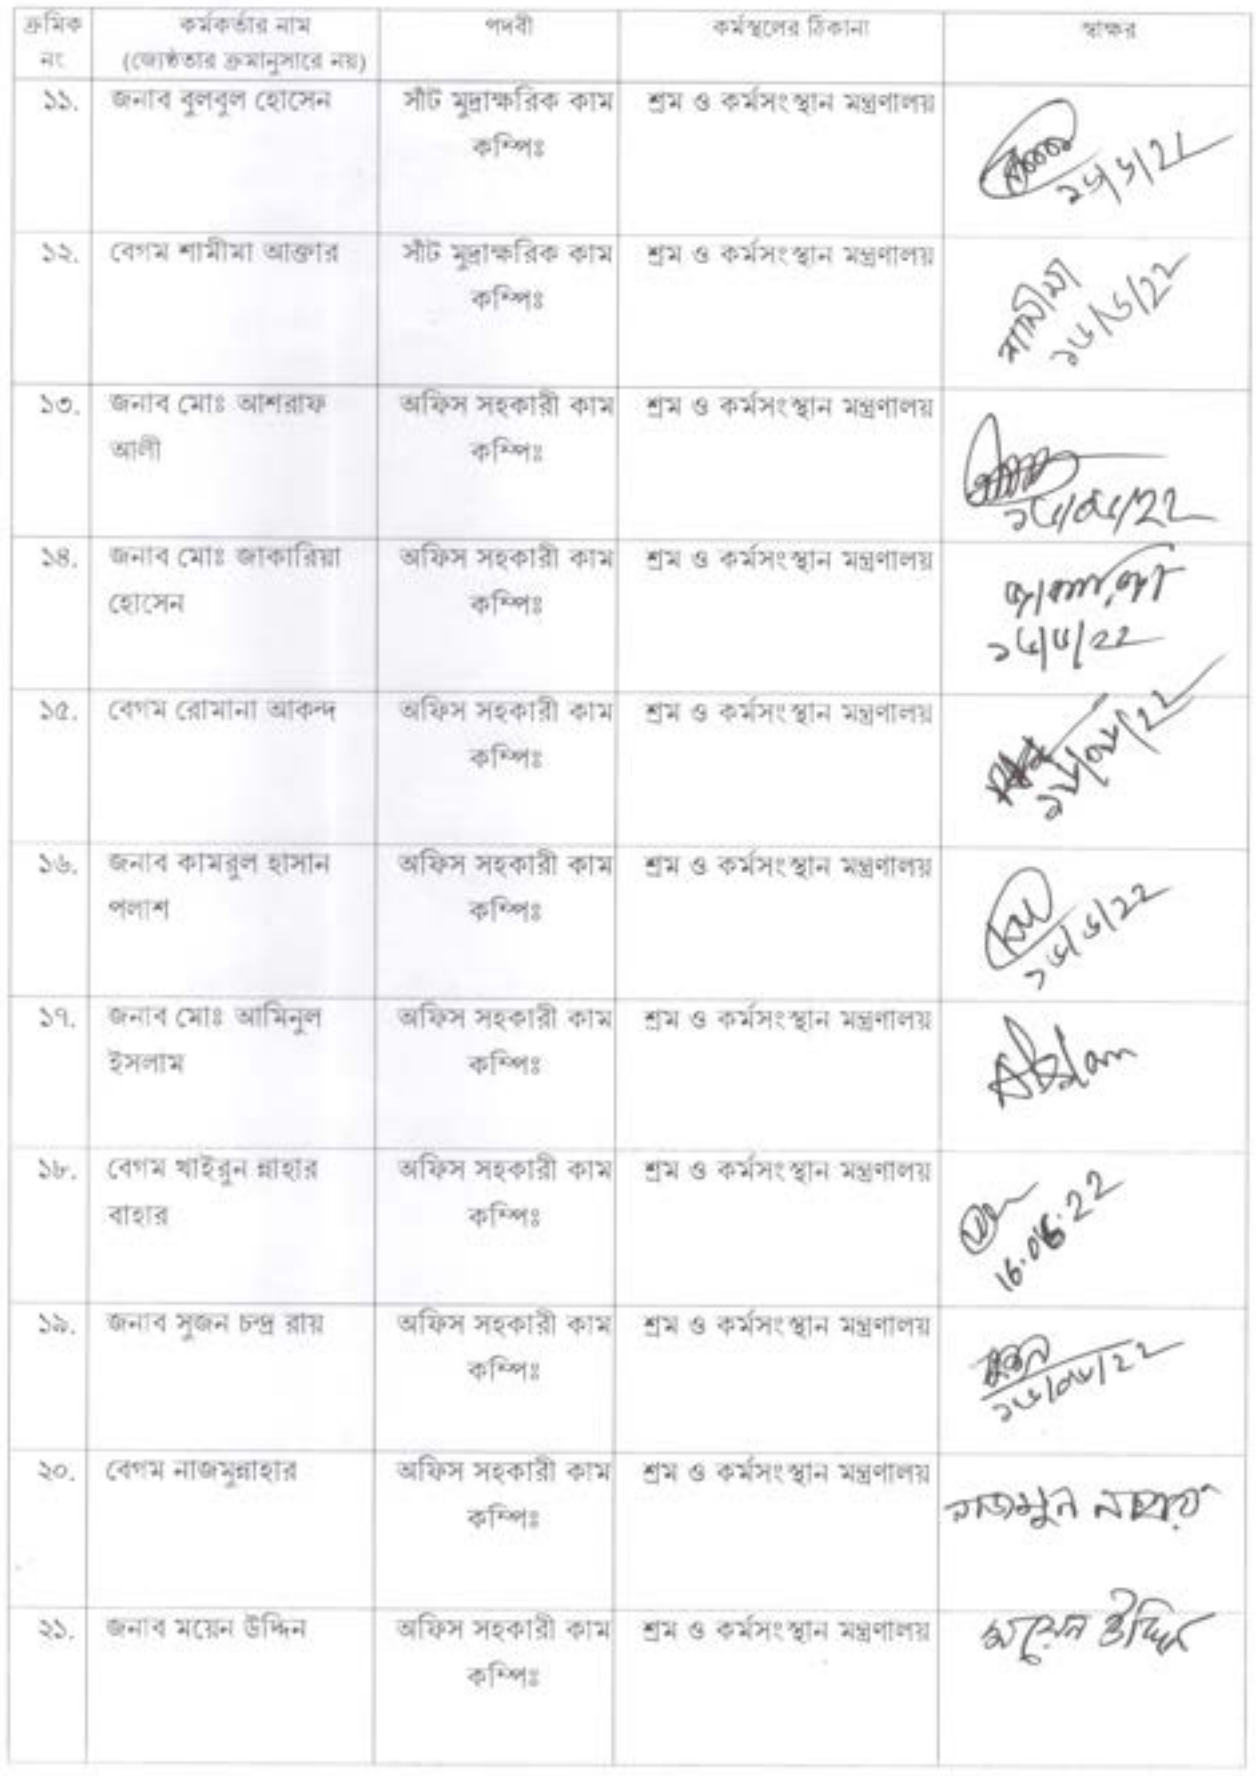 ক্রমিক নং	কর্মকর্তার নাম (জ্যেষ্ঠতার ক্রমানুসারে নয়)	পদবী	কর্মস্থলের ঠিকানা	স্বাক্ষর
১১.	জনাব বুলবুল হোসেন	সাঁট মুদ্রাক্ষরিক কাম	শ্রম ও কর্মসংস্থান মন্ত্রণালয়
কম্পিঃ
১২.	বেগম শামীমা আক্তার	সাঁট মুদ্রাক্ষরিক কাম	শ্রম ও কর্মসংস্থান মন্ত্রণালয়	শামীমা
কম্পিঃ	১৬/৬/২২
১৩.	জনাব মোঃ আশরাফ	অফিস সহকারী কাম	শ্রম ও কর্মসংস্থান মন্ত্রণালয়
আলী	কম্পিঃ
১৪.	জনাব মোঃ জাকারিয়া	অফিস সহকারী কাম	শ্রম ও কর্মসংস্থান মন্ত্রণালয়
হোসেন	কম্পিঃ	১৬/৬/২২
১৫.	বেগম রোমানা আকন্দ	অফিস সহকারী কাম	শ্রম ও কর্মসংস্থান মন্ত্রণালয়
কম্পিঃ	১৬/০৬/২২
১৬.	জনাব কামরুল হাসান	অফিস সহকারী কাম	শ্রম ও কর্মসংস্থান মন্ত্রণালয়
পলাশ	কম্পিঃ	১৬/৬/২২
১৭.	জনাব মোঃ আমিনুল	অফিস সহকারী কাম	শ্রম ও কর্মসংস্থান মন্ত্রণালয়
ইসলাম	কম্পিঃ
১৮.	বেগম খাইরুন ন্নাহার	অফিস সহকারী কাম	শ্রম ও কর্মসংস্থান মন্ত্রণালয়
বাহার	কম্পিঃ	16.06.22
১৯.	জনাব সুজন চন্দ্র রায়	অফিস সহকারী কাম	শ্রম ও কর্মসংস্থান মন্ত্রণালয়	সুজন
কম্পিঃ	১৬/০৬/২২
২০.	বেগম নাজমুন্নাহার	অফিস সহকারী কাম	শ্রম ও কর্মসংস্থান মন্ত্রণালয়	নাজমুন নাহার
কম্পিঃ
২১.	জনাব ময়েন উদ্দিন	অফিস সহকারী কাম	শ্রম ও কর্মসংস্থান মন্ত্রণালয়	ময়েন উদ্দিন
কম্পিঃ